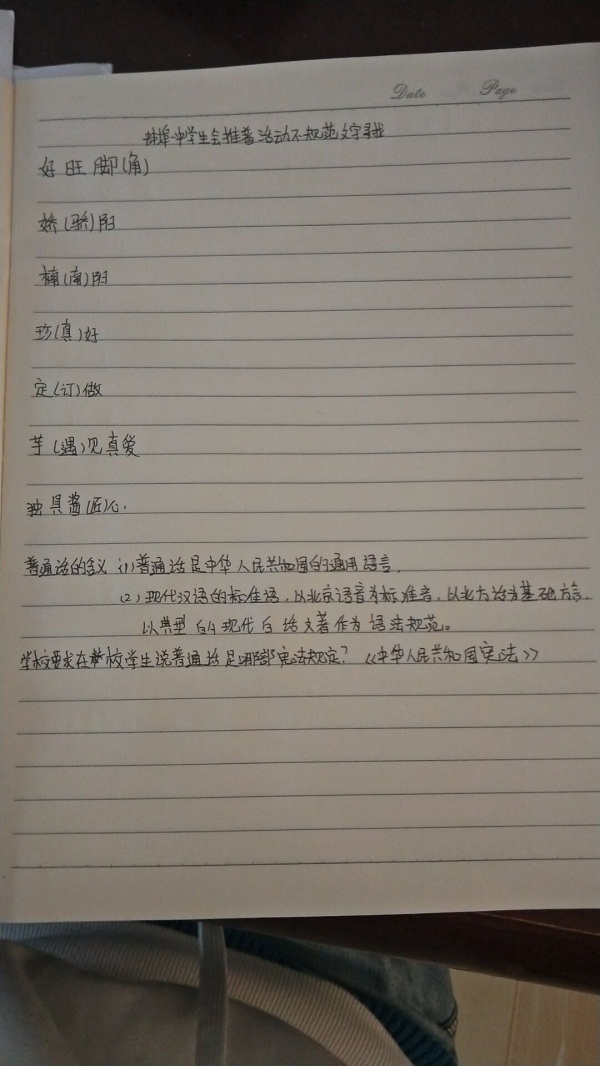 Date Page
蚌埠中学生会推普活动不规范文字寻找
好旺脚(角)
娇(骄)阳
楠(南)阳
珍(真)好
定(订)做
芋(遇)见真爱
独具酱(匠)心.
普通话的含义 (1)普通话是中华人民共和国的通用语言.
(2)现代汉语的标准语,以北京语音为标准音,以北方话为基础方言.
以典型的现代白话文著作为语法规范。
学校要求在校学生说普通话是哪部宪法规定?《中华人民共和国宪法》